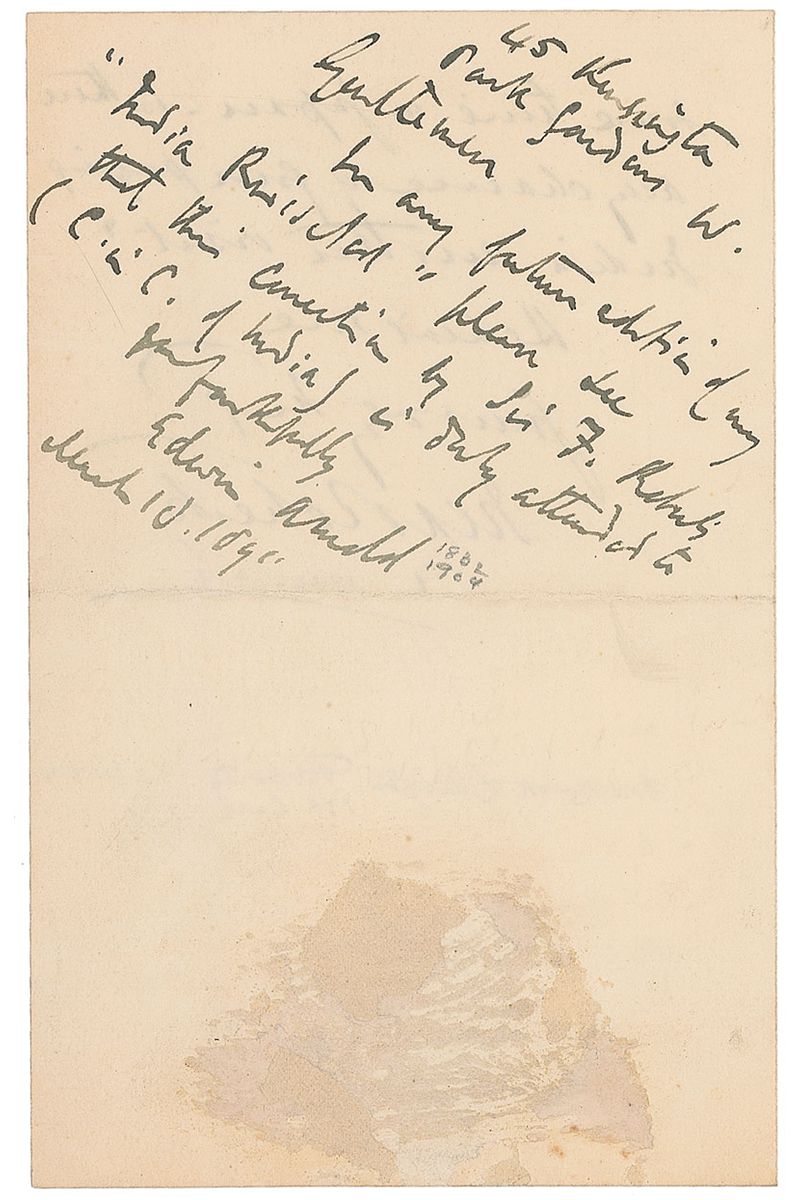 45 Kensington
Park Gardens W.
Gentlemen
In any future edition of my
"India Revisited" please see
that this correction by Sir F. Roberts
(C. in C. of India) is duly attended to
Yrs faithfully
Edwin Arnold
March 10. 1890.
1832
1904